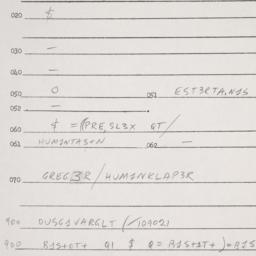 020 $
030 —
040 —
050 O 051 EST3RTA.N1S
052 —
060 $ = (PRE,SL3X QT/
061 HUM1NTASON 062 —
070 GREG3R/HUM1NKLAP3R
900 OUSG1VARGLT (/109021
900 R1S+OT+ Q1 $ Q = R1S+1T+)=R1S